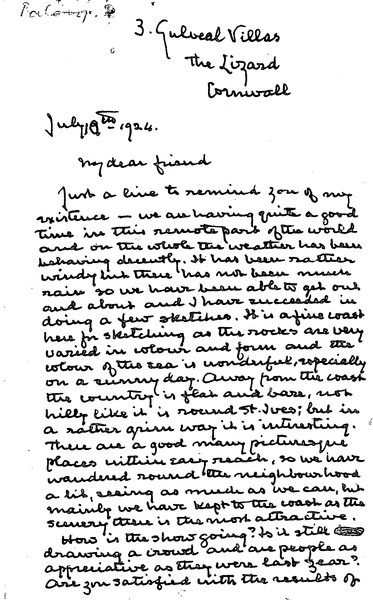 3. Gulveal Villas
The Lizard
Cornwall
July 19th 1924.
My dear friend
Just a line to remind you of my
existence — we are having quite a good
time in this remote part of the world
and on the whole the weather has been
behaving decently. It has been rather
windy but there has not been much
rain so we have been able to get out
and about and I have succeeded in
doing a few sketches. It is a fine coast
here for sketching as the rocks are very
varied in colour and form and the
colour of the sea is wonderful, especially
on a sunny day. Away from the coast
the country is flat and bare, not
hilly like it is round St. Ives; but in
a rather grim way it is interesting.
There are a good many picturesque
places within easy reach, so we have
wandered round the neighbourhood
a bit, seeing as much as we can, but
mainly we have kept to the coast as the
scenery there is the most attractive.
How is the show going? Is it still
drawing a crowd and are people as
appreciative as they were last year?
Are you satisfied with the results of